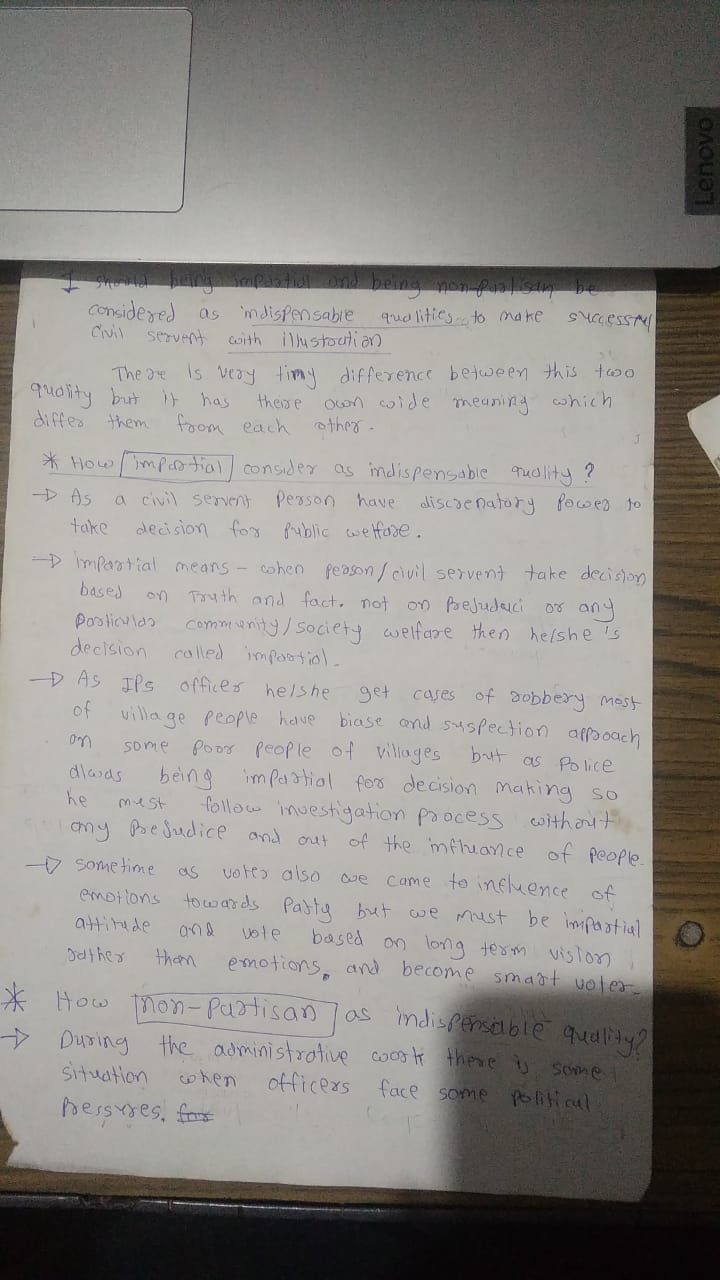 Lenovo
I should being impartial and being non-partisan be
considered as indispensable qualities to make successful
Civil servent with illustration
There is very tiny difference between this two
quality but it has there own wide meaning which
differ them from each other.
* How impartial consider as indispensable quality ?
→ As a civil servent person have discrenatory power to
take decision for public welfare.
→ impartial means - when person/civil servent take decision
based on Truth and fact. not on Prejudaci or any
particular community/society welfare then he/she 's
decision called impartial.
→ As IPS officer he/she get cases of robbery most
of village people have biase and suspection approach
on some poor people of villages but as Police
alwas being impartial for decision making so
he must follow investigation process without
any Prejudice and out of the influance of people.
→ sometime as voter also we came to influence of
emotions towards Party but we must be impartial
attitude and vote based on long term vision
rather then emotions, and become smart voter.
* How non-partisan as indispensable quality?
→ During the administrative work there is some
situation when officers face some political
Pressures. for